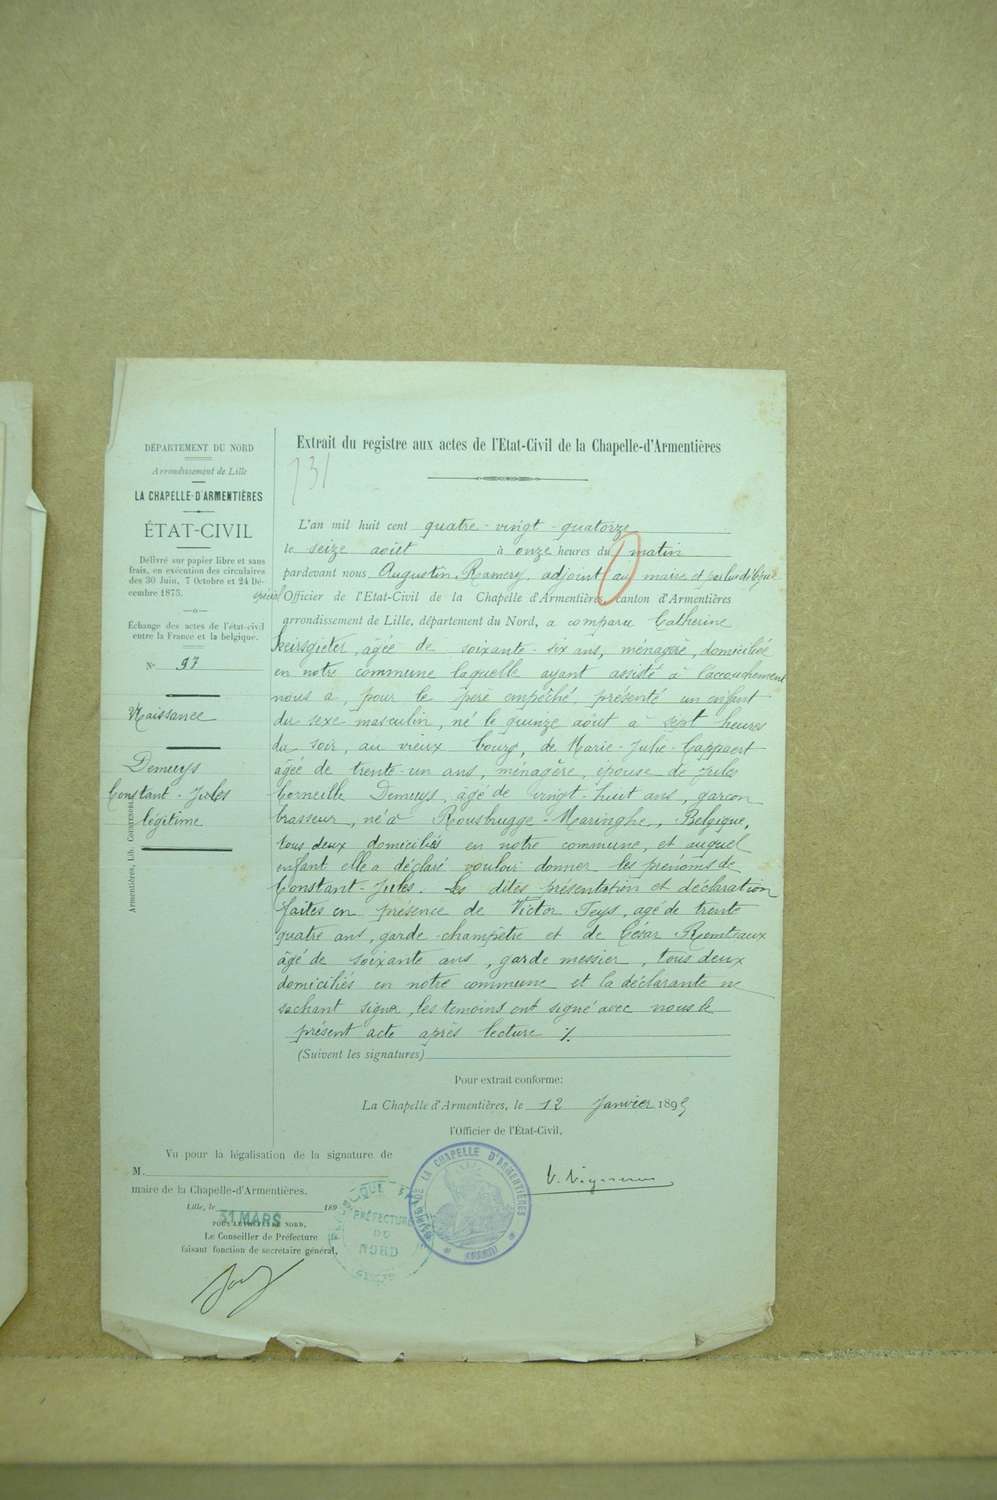 DÉPARTEMENT DU NORD
Arrondissement de Lille
LA CHAPELLE-D'ARMENTIÈRES
ÉTAT-CIVIL
Délivré sur papier libre et sans
frais, en exécution des circulaires
des 30 Juin, 7 Octobre et 24 Dé-
cembre 1875.
Echange des actes de l'état-civil
entre la France et la belgique.
N° 97
Naissance
Demuys
Constant-Jules
légitime
Armentières, Lib.
Extrait du registre aux actes de l'Etat-Civil de la Chapelle-d'Armentières
731
L'an mil huit cent quatre-vingt-quatorze
le seize août à onze heures du matin
pardevant nous Augustin Ramery, adjoint au maire et par lui délégué
spécial Officier de l'Etat-Civil de la Chapelle d'Armentières, canton d'Armentières
arrondissement de Lille, département du Nord, a comparu Catherine
âgée de soixante-six ans, ménagère, domiciliée
en notre commune laquelle ayant assisté à l'accouchement
nous a, pour le père empêché, présenté un enfant
du sexe masculin, né le quinze août à sept heures
du soir, au vieux bourg, de Marie-Julie Cappaert
âgée de trente-un ans, ménagère, épouse de Jules
Corneille Demuys, âgé de vingt-huit ans, garçon
brasseur, né à Rousbrugge-Haringhe, Belgique,
tous deux domiciliés en notre commune, et auquel
enfant elle a déclaré vouloir donner les prénoms de
Constant-Jules. Les dites présentation et déclaration
faites en présence de Victor Teys, agé de trente
quatre ans, garde-champêtre et de César
âgé de soixante ans, garde messier, tous deux
domiciliés en notre commune et la déclarante ne
sachant signer, les témoins ont signé avec nous le
présent acte après lecture %
(Suivent les signatures)
Pour extrait conforme:
La Chapelle d'Armentières, le 12 Janvier 1895
l'Officier de l'État-Civil,
MAIRIE DE LA CHAPELLE D'ARMENTIÈRES
(NORD)
Vu pour la légalisation de la signature de
M.
maire de la Chapelle-d'Armentières.
Lille, le 189
31 MARS
POUR LE PRÉFET DU NORD,
Le Conseiller de Préfecture
faisant fonction de secrétaire général,
PRÉFECTURE
DU
NORD